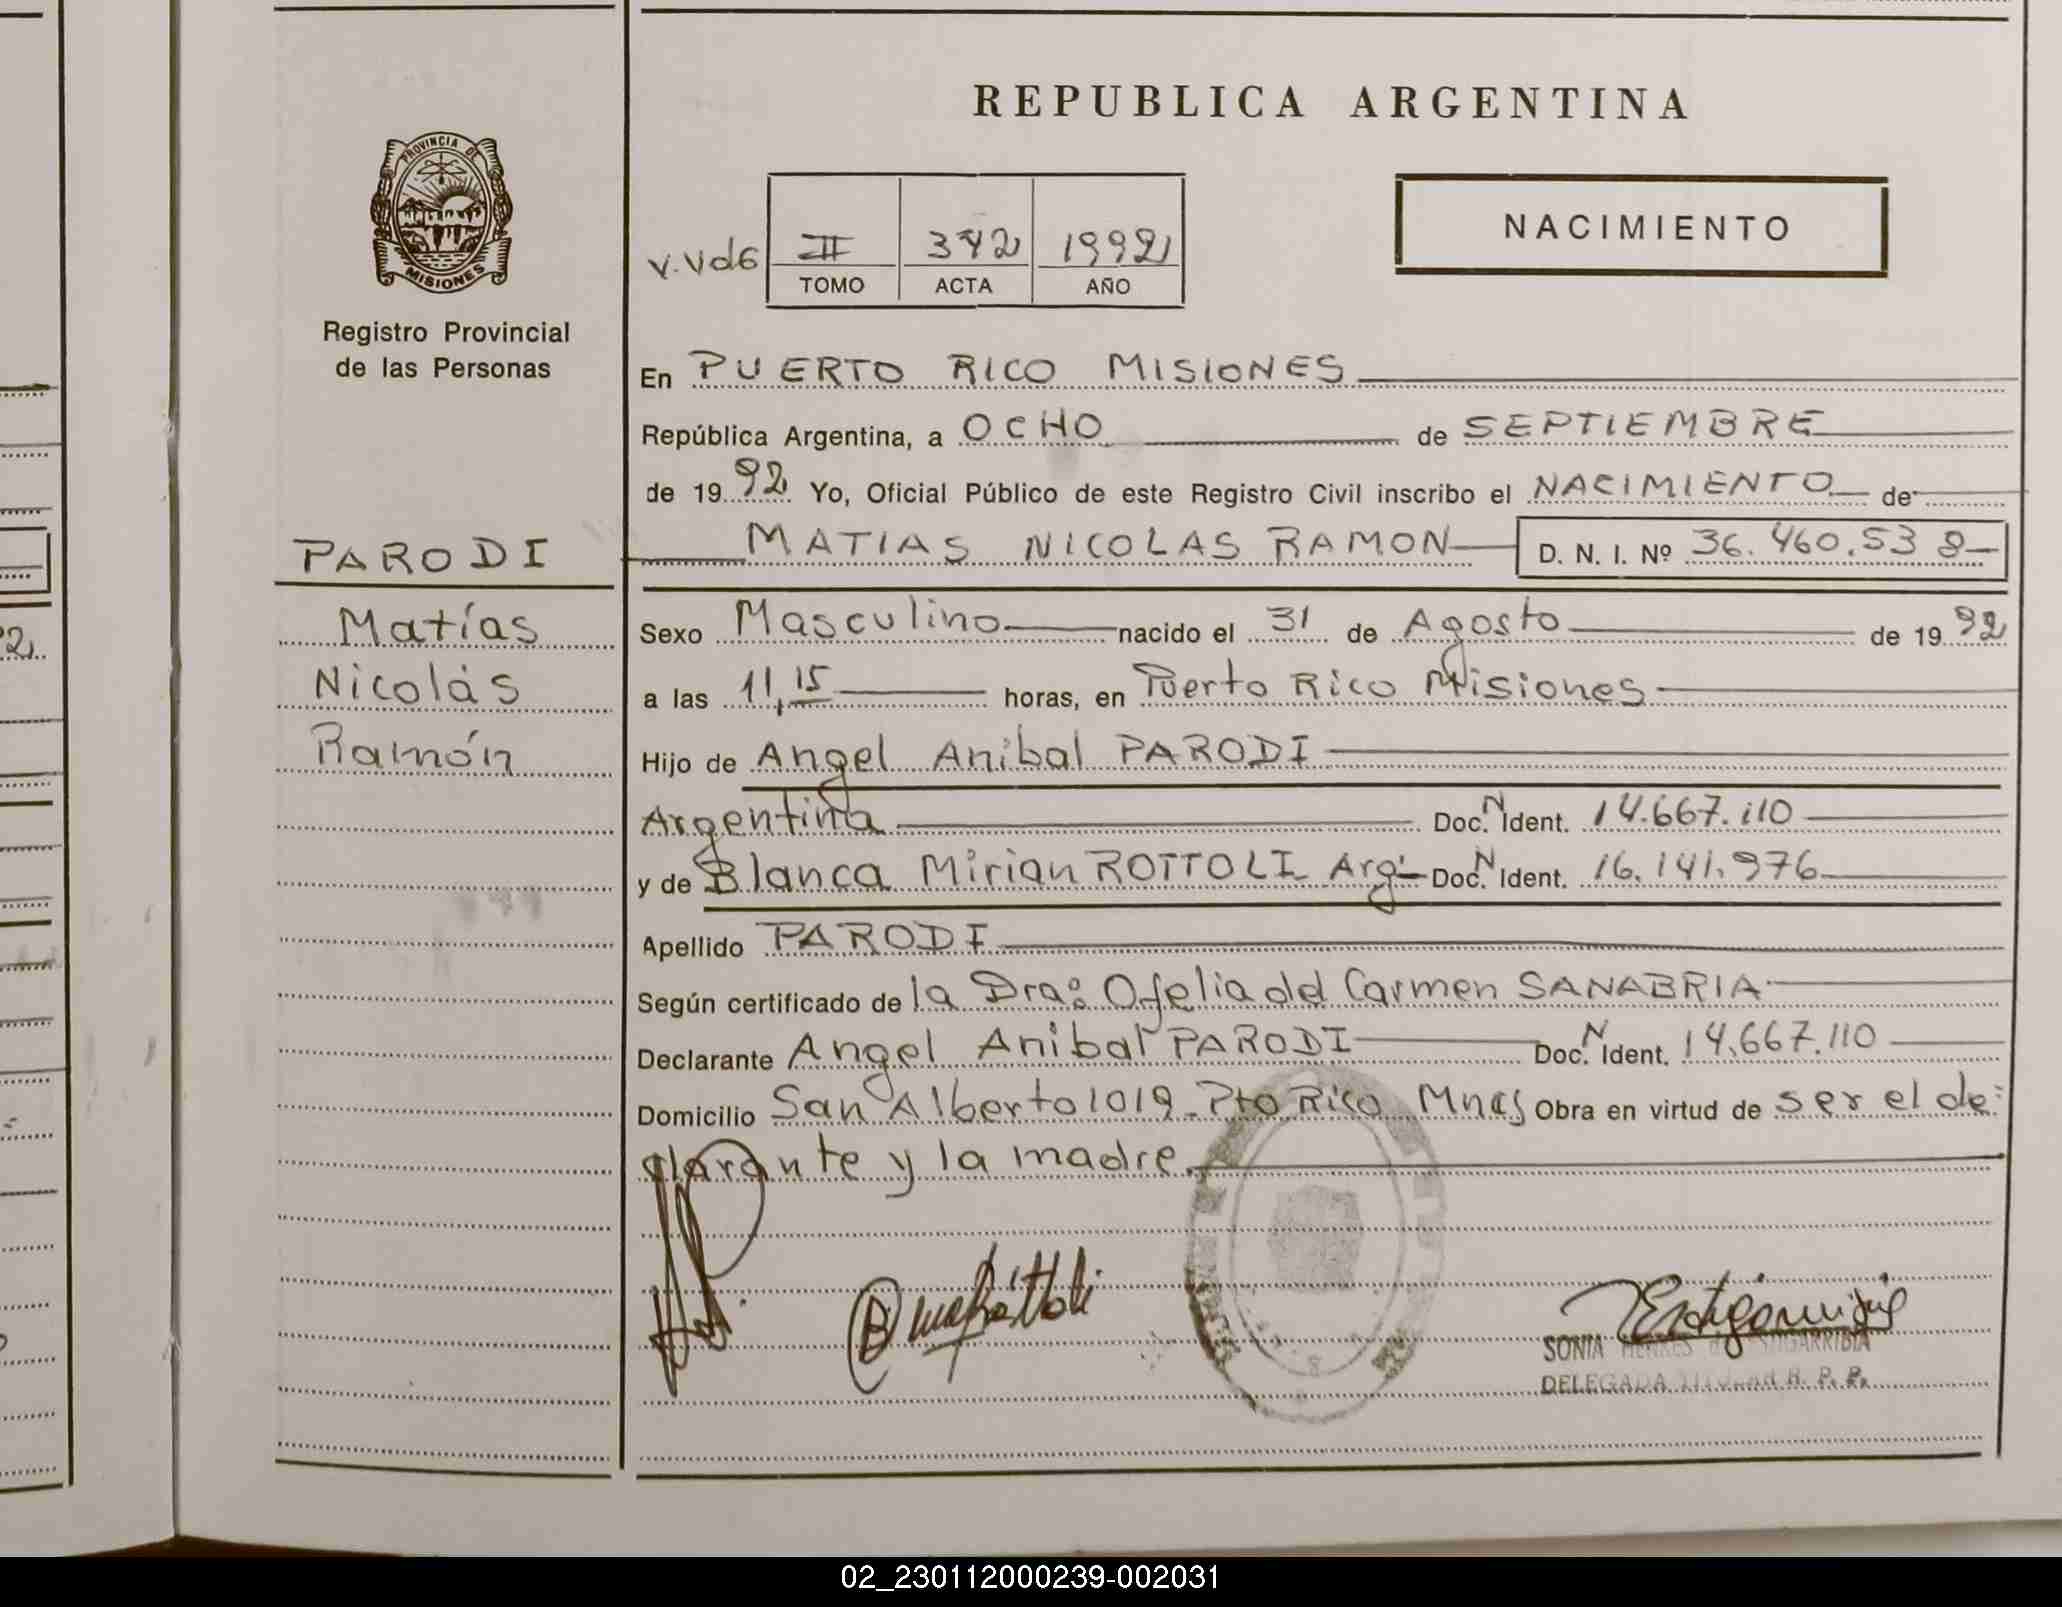 REPUBLICA ARGENTINA
PROVINCIA DE
MISIONES
Registro Provincial
de las Personas
NACIMIENTO
II 342 1992
TOMO ACTA AÑO
En PUERTO RICO MISIONES
República Argentina, a OCHO de SEPTIEMBRE
de 1992 Yo, Oficial Público de este Registro Civil inscribo el NACIMIENTO de
MATIAS NICOLAS RAMON D. N. I. Nº 36.460.538
PARODI
Matías
Nicolás
Ramón
Sexo Masculino nacido el 31 de Agosto de 1992
a las 11,15 horas, en Puerto Rico Misiones
Hijo de Angel Anibal PARODI
Argentina Doc. N Ident. 14.667.110
y de Blanca Mirian ROTTOLI Arg. Doc. N Ident. 16.141.976
Apellido PARODI
Según certificado de la Dra. Ofelia del Carmen SANABRIA
Declarante Angel Anibal PARODI Doc. N Ident. 14.667.110
Domicilio San Alberto 1019 Pto Rico Mnes Obra en virtud de ser el de
clarante y la madre.
SONIA
DELEGADA TITULAR R. P. P.
02_230112000239-002031